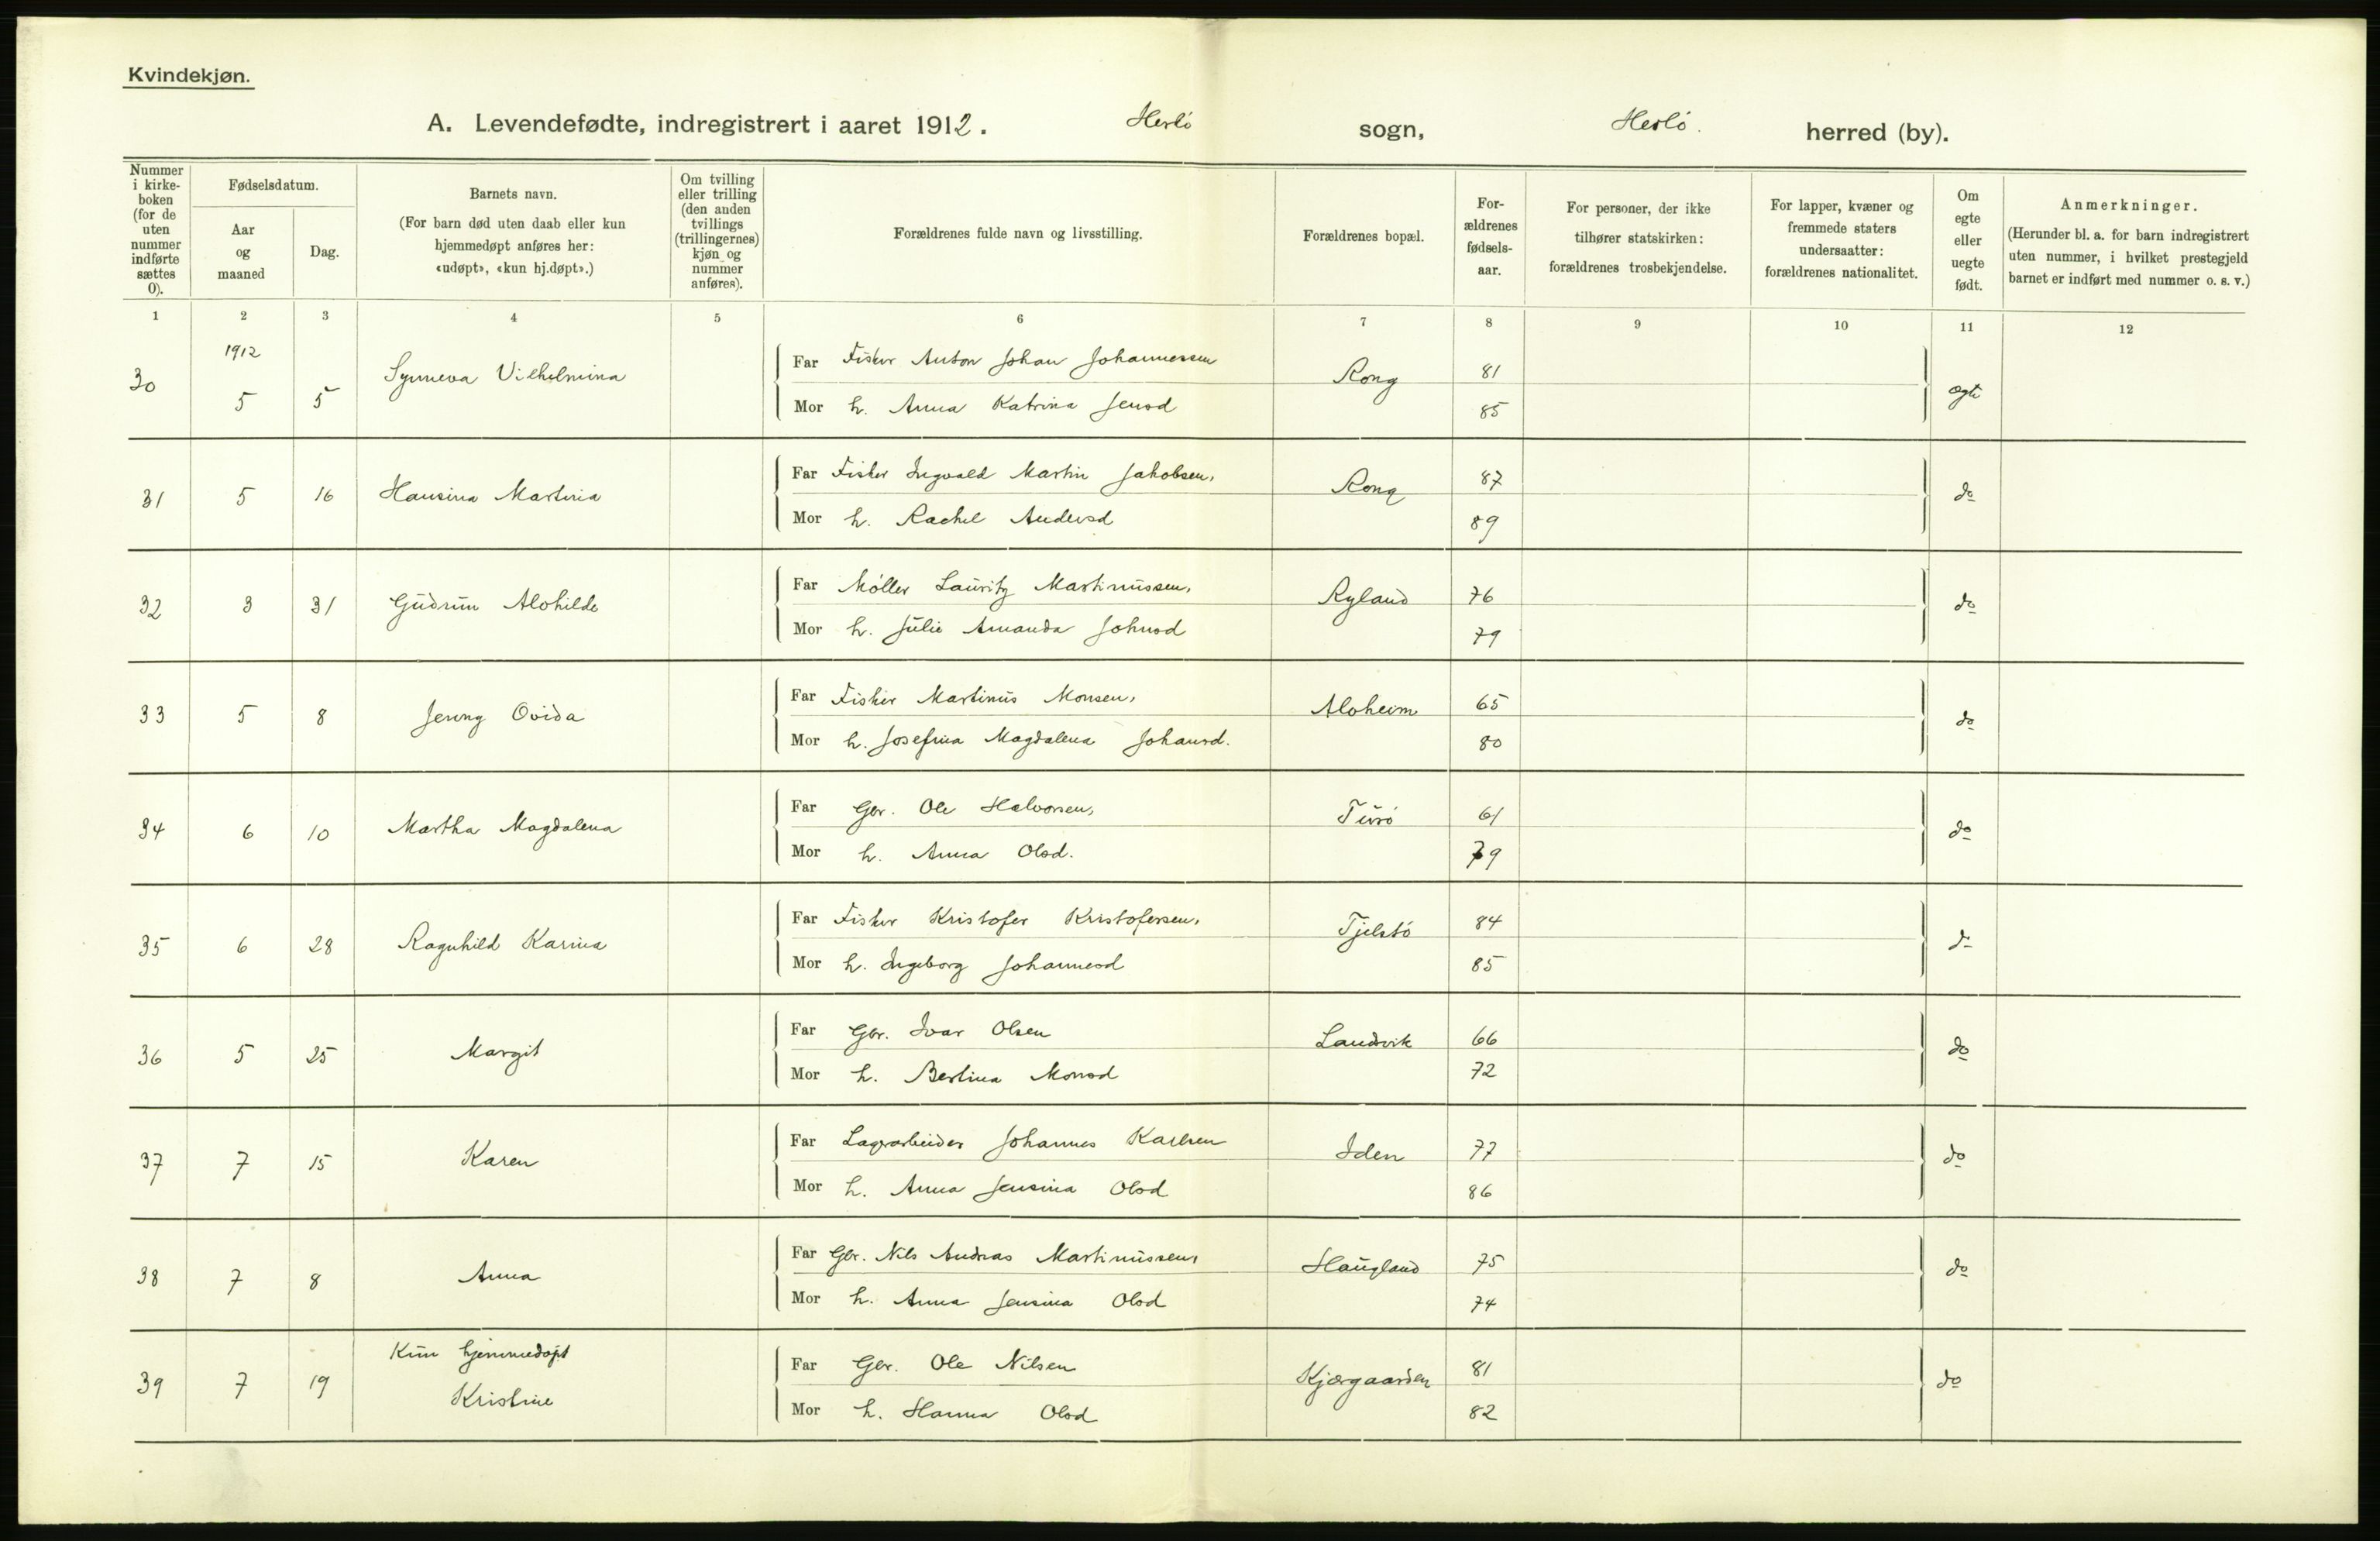 Kvindekjøn.
A. Levendefødte, indregistrert i aaret 1912. Herlö sogn, Herlö. herred (by).
Nummer i kirke-boken (for de uten nummer indførte sættes 0).
Fødselsdatum.
Aar og maaned
Dag.
Barnets navn.
(For barn død uten daab eller kun hjemmedøpt anføres her: «udøpt», «kun hj.døpt».)
Om tvilling eller trilling (den anden tvillings (trillingernes) kjøn og nummer anføres).
Forældrenes fulde navn og livsstilling.
Forældrenes bopæl.
For-ældrenes fødsels-aar.
For personer, der ikke tilhører statskirken: forældrenes trosbekjendelse.
For lapper, kvæner og fremmede staters undersaatter: forældrenes nationalitet.
Om egte eller uegte født.
Anmerkninger.
(Herunder bl. a. for barn indregistrert uten nummer, i hvilket prestegjeld barnet er indført med nummer o. s. v.)
1 2 3 4 5 6 7 8 9 10 11 12
1912
30 5 5 Synneva Vilhelmina Far Fisker Anton Johan Johannessen Rong 81 ægte
Mor h. Anna Katrina Jensd 85
31 5 16 Hansina Martina Far Fisker Ingvald Martin Jakobsen, Rong 87 do
Mor h. Rachel Andersd 89
32 3 31 Gudrun Alohilde Far Möller Lauritz Martinussen, Ryland 76 do
Mor h. Julie Amanda Johnsd 79
33 5 8 Jenny Ovida Far Fisker Martinus Monsen, Aloheim 65 do
Mor h. Josefina Magdalena Johansd. 80
34 6 10 Martha Magdalena Far Gbr. Ole Halvorsen, Tursö 61 do
Mor h. Anna Olsd. 79
35 6 28 Ragnhild Karina Far Fisker Kristofer Kristofersen, Tjelstö 84 do
Mor h. Ingeborg Johannesd 85
36 5 25 Margit Far Gbr. Ivar Olsen Landsvik 66 do
Mor h. Bertina Monsd 72
37 7 15 Karen Far Lagerarbeider Johannes Karlsen Iden 77 do
Mor h. Anna Jensina Olsd 86
38 7 8 Anna Far Gbr. Nils Andreas Martinussen, Haugland 75 do
Mor h. Anna Jensina Olsd 74
Kun hjemmedöpt
39 7 19 Kristine Far Gbr. Ole Nilsen Kjærgaarden 81 do
Mor h. Hanna Olsd 82